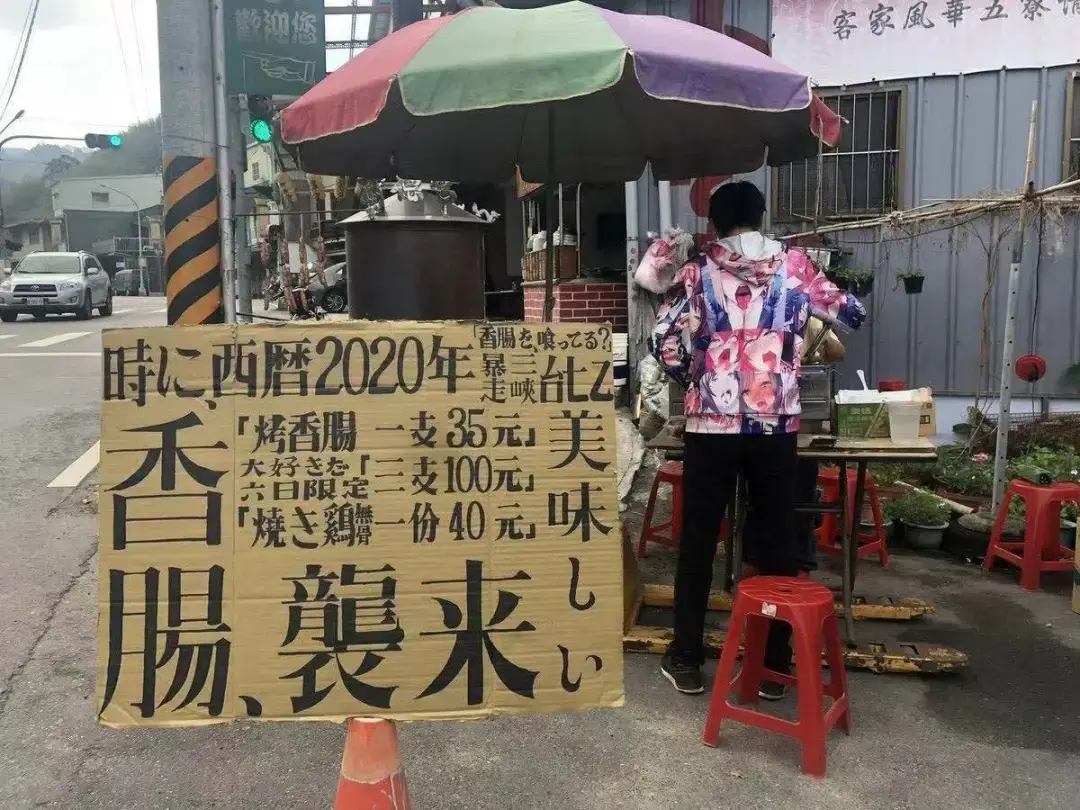 歡迎您
客家風華五寮情
時に、西暦2020年
「香腸を喰ってる?」
暴走
三峽
台七乙
香腸、襲来
「烤香腸 一支35元」
大好きな「三支100元」
六日限定
「焼き鶏無骨一份40元」
美味しい